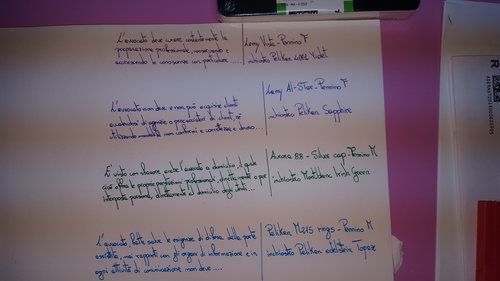 L'avvocato deve curare costantemente la
preparazione professionale, conservando e
accrescendo le conoscenze con particolare....
Lamy Vista - Pennino F
inchiostro Pelikan 4001 Violet
L'avvocato non deve e non può acquisire clienti
avvalendosi di agenzie o procacciatori di clienti, né
utilizzando modalità non conformi a correttezza e decoro...
Lamy Al-Star - Pennino F
inchiostro Pelikan Sapphire
E' vietato con chiarezza anche l'avvocato a domicilio, il quale
cioè offra le proprie prestazioni professionali, direttamente o per
interposta persona, direttamente al domicilio degli utenti...
Aurora 88 - Silver cap - Pennino M
inchiostro Montblanc Irish Green
L'avvocato, fatte salve le esigenze di difesa della parte
assistita, nei rapporti con gli organi di informazione e in
ogni attività di comunicazione non deve....
Pelikan M215 rings - Pennino M
inchiostro Pelikan edelstein Topaz
R